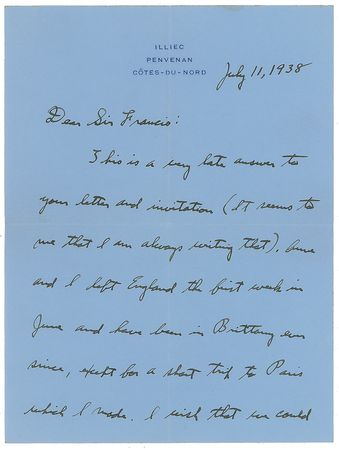 ILLIEC
PENVENAN
CÔTES-DU-NORD
July 11, 1938
Dear Sir Francis:
This is a very late answer to
your letter and invitation (It seems to
me that I am always writing that). Anne
and I left England the first week in
June and have been in Brittany ever
since, except for a short trip to Paris
which I made. I wish that we could